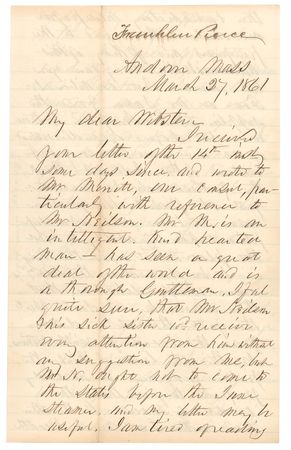 Franklin Pierce
Andover Mass
March 27, 1861
My dear Webster
I received
your letter of the 14th inst
some days since, and wrote to
Mr. Merritt, our consul, par-
ticularly with reference to
Mr. Neilson. Mr M. is an
intelligent, kind hearted
man — has seen a great
deal of the world and is
a thorough Gentleman. I feel
quite sure, that Mr Neilson
& his sick sister wd receive
every attention from him without
any suggestion from me, but
Mr N. ought not to come to
the States before the June
steamer, and my letter may be
useful. I am tired of reading